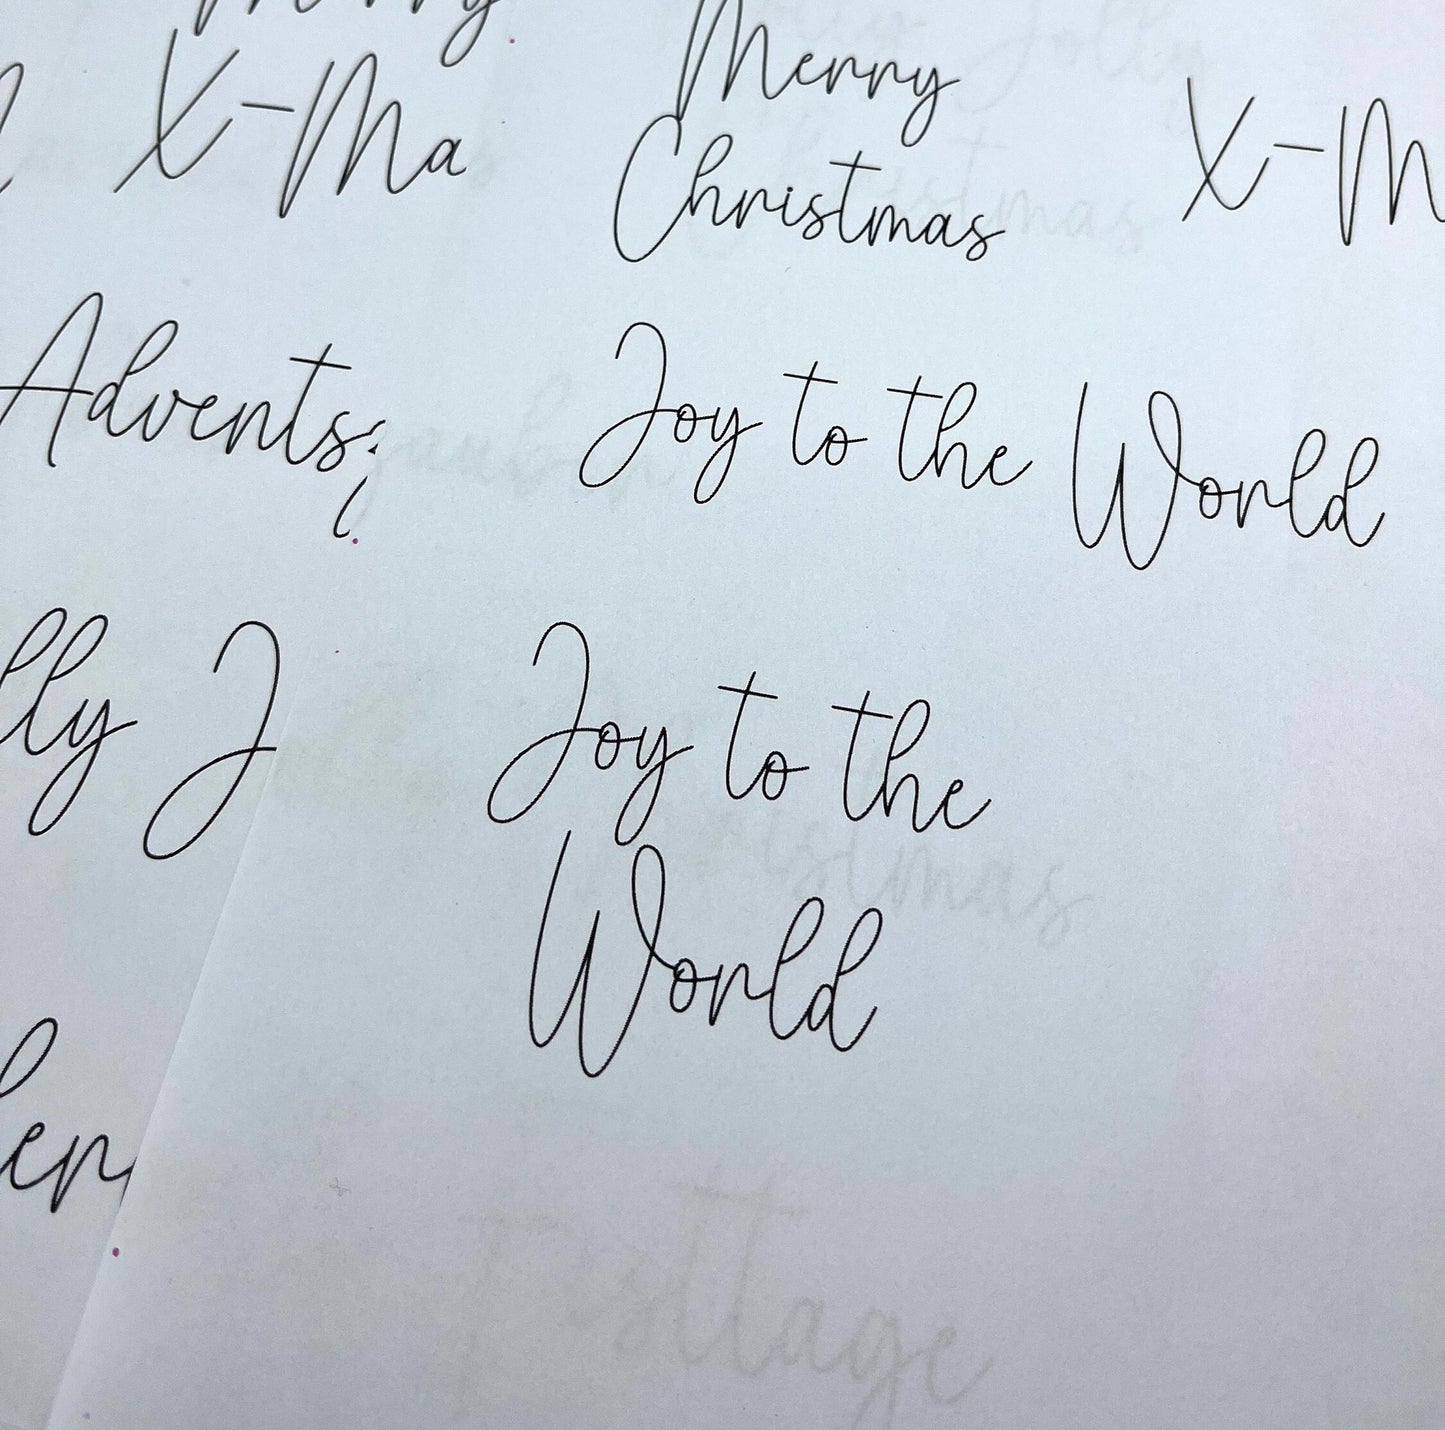 Merry
X-Ma
Merry
Christmas
X-M
Advents
Joy to the World
lly J
Joy to the
World
er